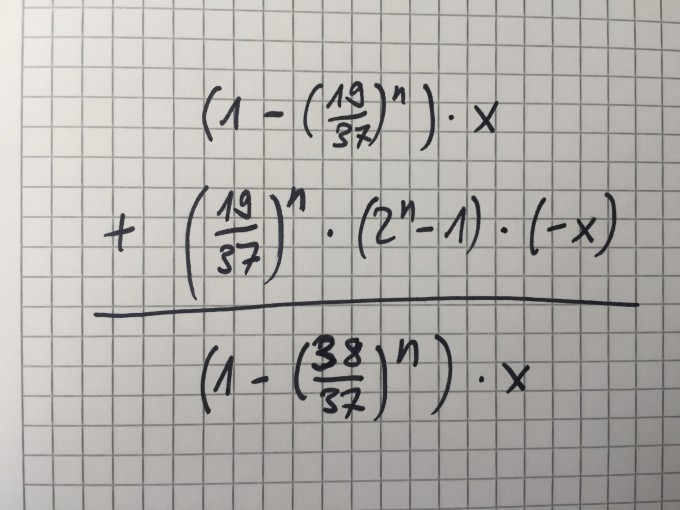 (1 - (19/37)^n) · x
+ (19/37)^n · (2^n - 1) · (-x)
(1 - (38/37)^n) · x